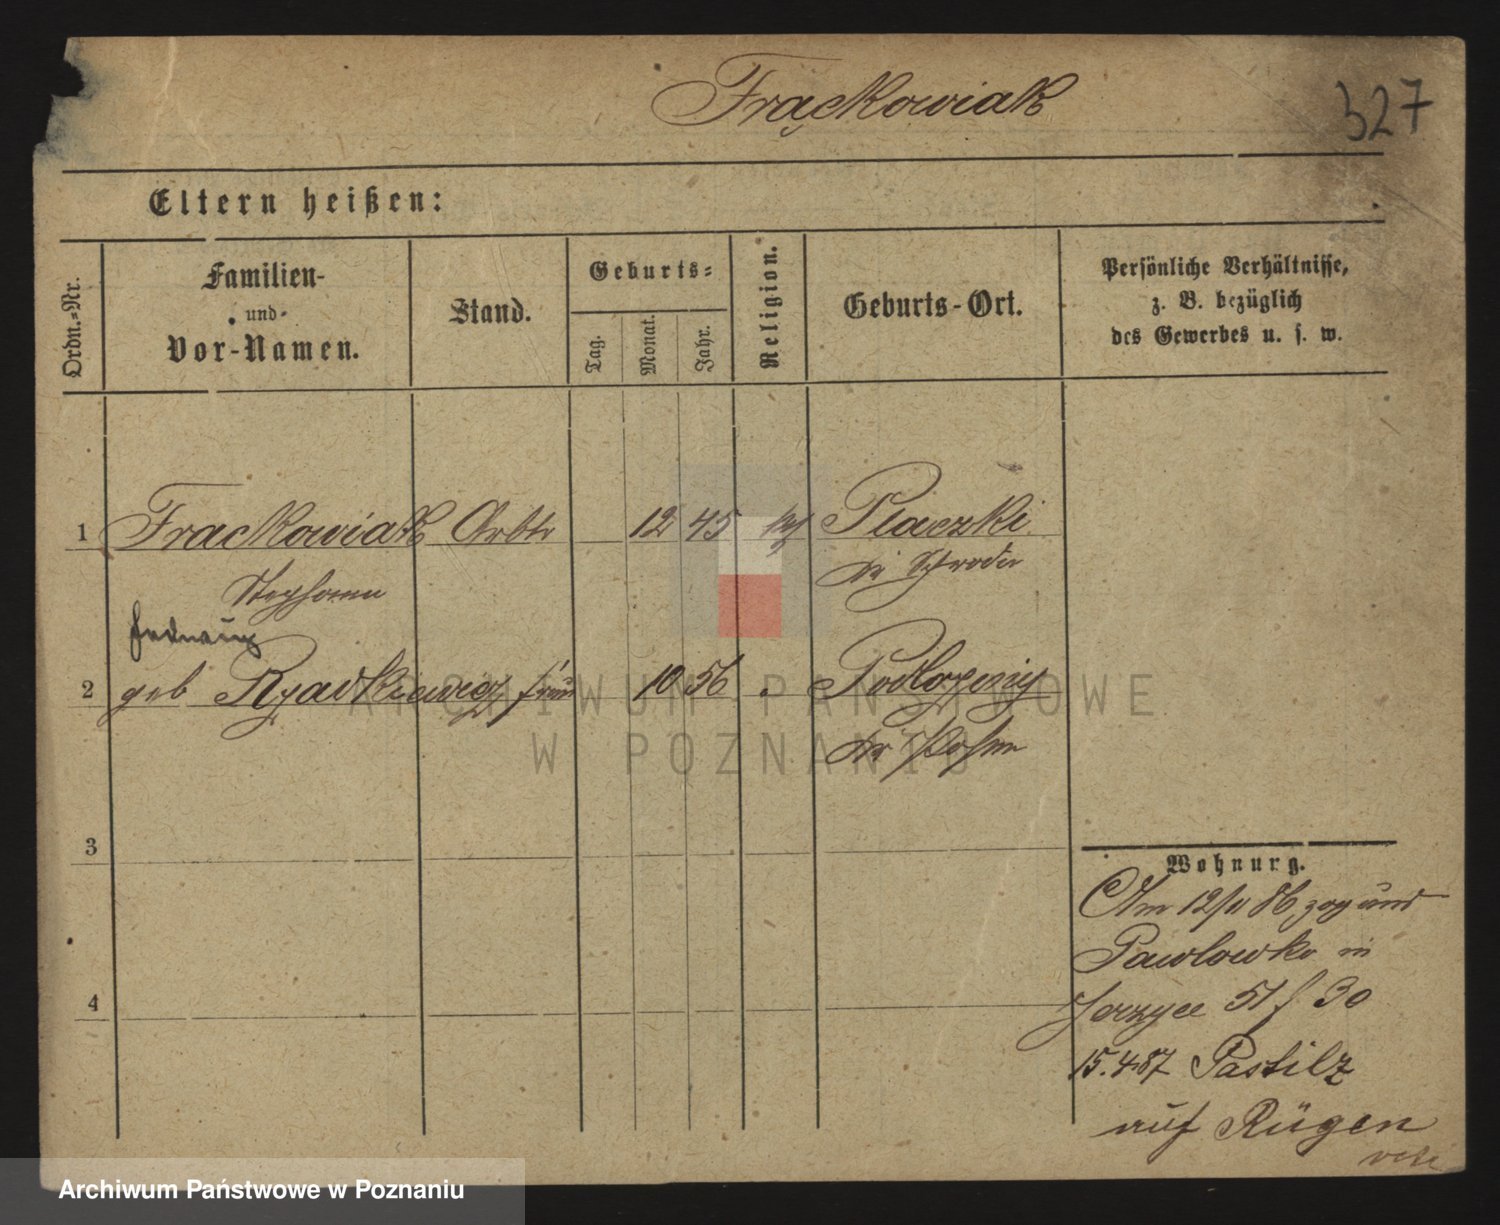 Frąckowiak
327
Eltern heißen:
Ordn.-Nr.
Familien-
und
Vor-Namen.
Stand.
Geburts-
Tag.
Monat.
Jahr.
Religion.
Geburts-Ort.
Persönliche Verhältnisse,
z. B. bezüglich
des Gewerbes u. s. w.
1 Frackowiak Arbtr 12 45 kf
Stephann
Hedwig
2 geb 10 56
3
4
Wohnung.
Am 12/11 86, zog und
Pawlowko in
Jerzyce 51 f 30
15.4.87 Pastilz
auf Rügen
ARCHIWUM PAŃSTWOWE
W POZNANIU
Archiwum Państwowe w Poznaniu